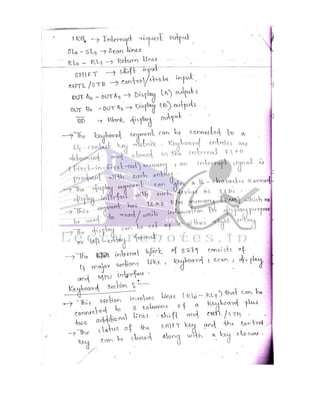 IRQ → Interrupt request output.
SL0 - SL3 → Scan lines
RL0 - RL7 → Return lines
SHIFT → shift input
CNTL/STB → control/strobe input.
OUT A0 - OUT A3 → Display (A) outputs
OUT B0 - OUT B3 → Display (B) outputs
BD → Blank display output
→ The keyboard segment can be connected to a
64-contact key matrix. Keyboard entries are
debounced and stored in the internal FIFO
(First-in-first-out) memory; an interrupt signal is
with each entry.
→ The display segment can a 16-character scanned
display interface with such as LEDs
→ This segment has 16x8 memory which can
be used to read/write information for display purpose
→ The display can be set
or left-entry format.
→ The internal block of 8279 consists of
4 major sections like, keyboard, scan, display
and MPU interface.
Keyboard section :
→ This section involves lines (RL0 - RL7) that can be
connected to 8 columns of a keyboard plus
two additional lines shift and CNTL/STB.
→ The status of the SHIFT key and the control
key can be stored along with a key closure.